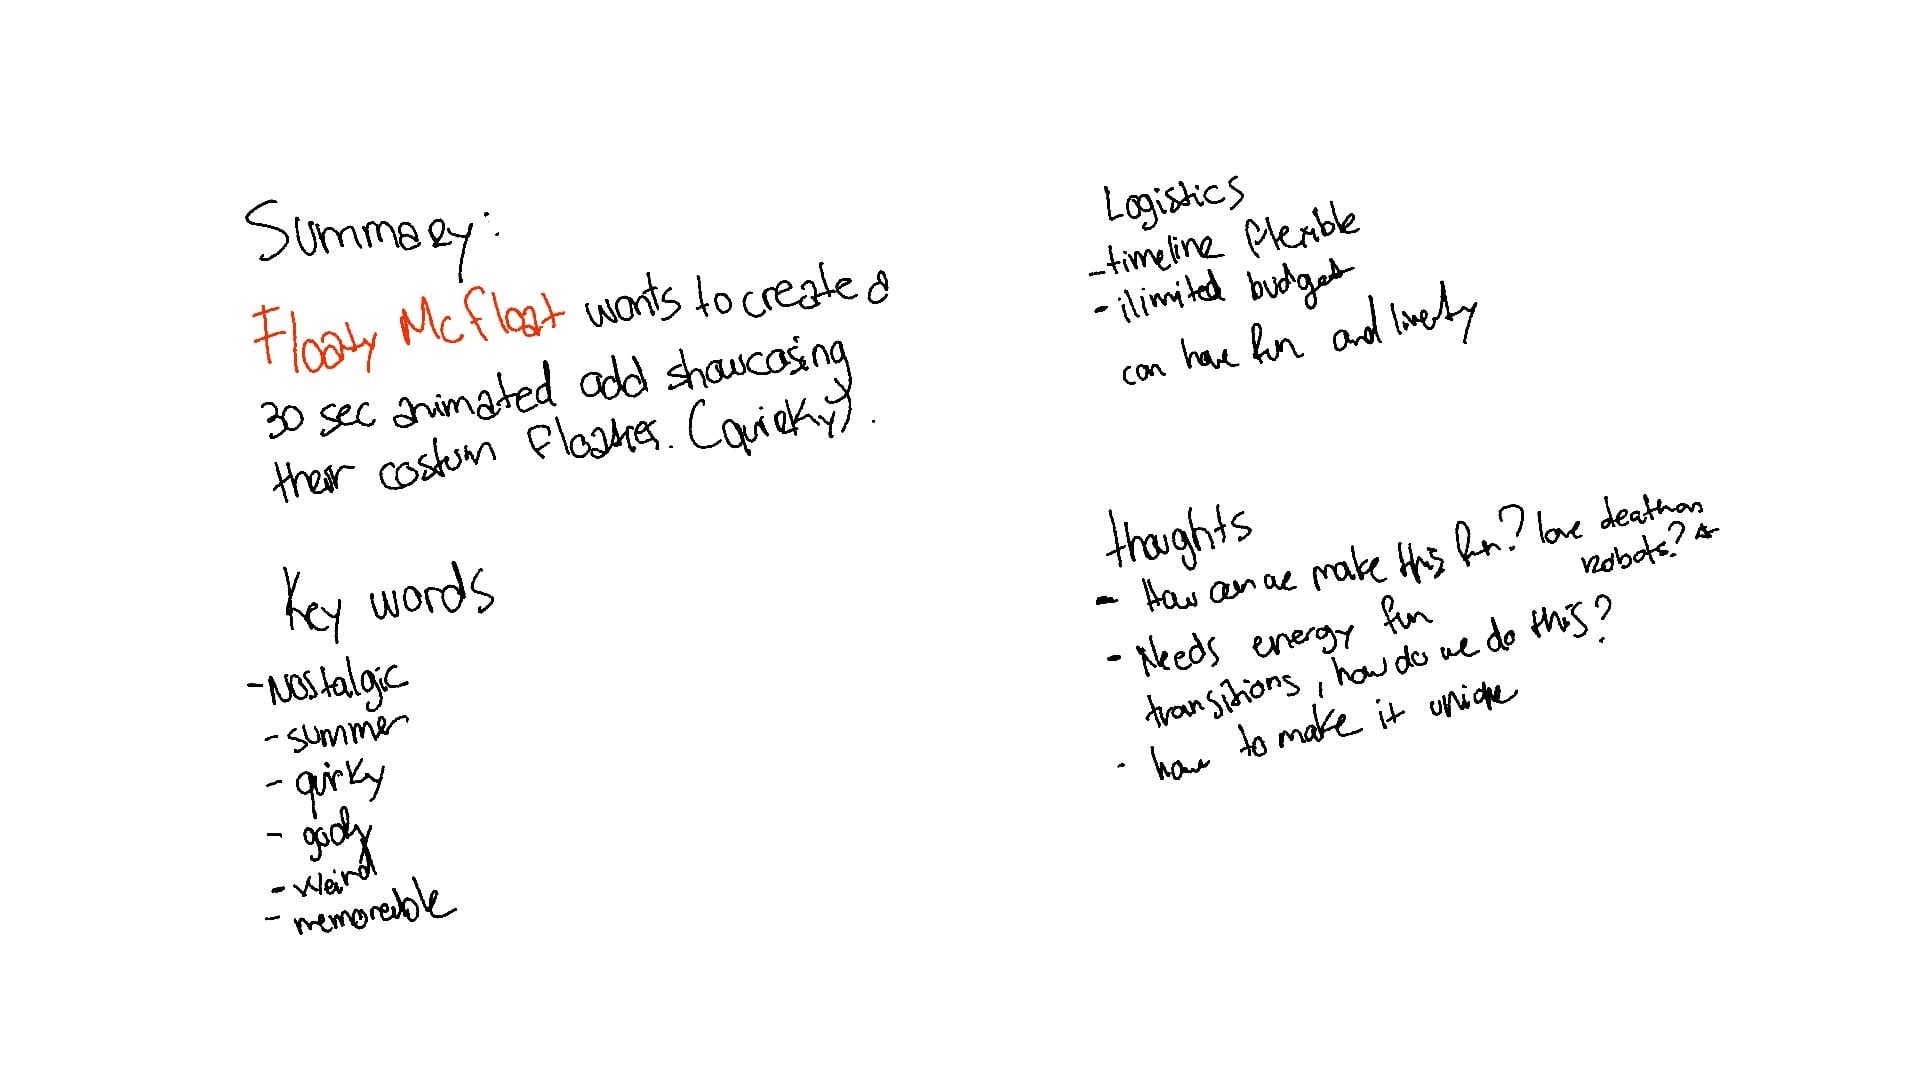 Summary:
Floaty McFloat wants to create a
30 sec animated add showcasing
their costum Floaties. (quirky).
Key words
- Nostalgic
- summer
- quirky
-
- weird
- memorable
Logistics
- timeline flexible
- ilimited budget
can have fun and
thoughts
- How can we make this fun? love death on
robots? *
- Needs energy fun
transitions, how do we do this?
- how to make it unique